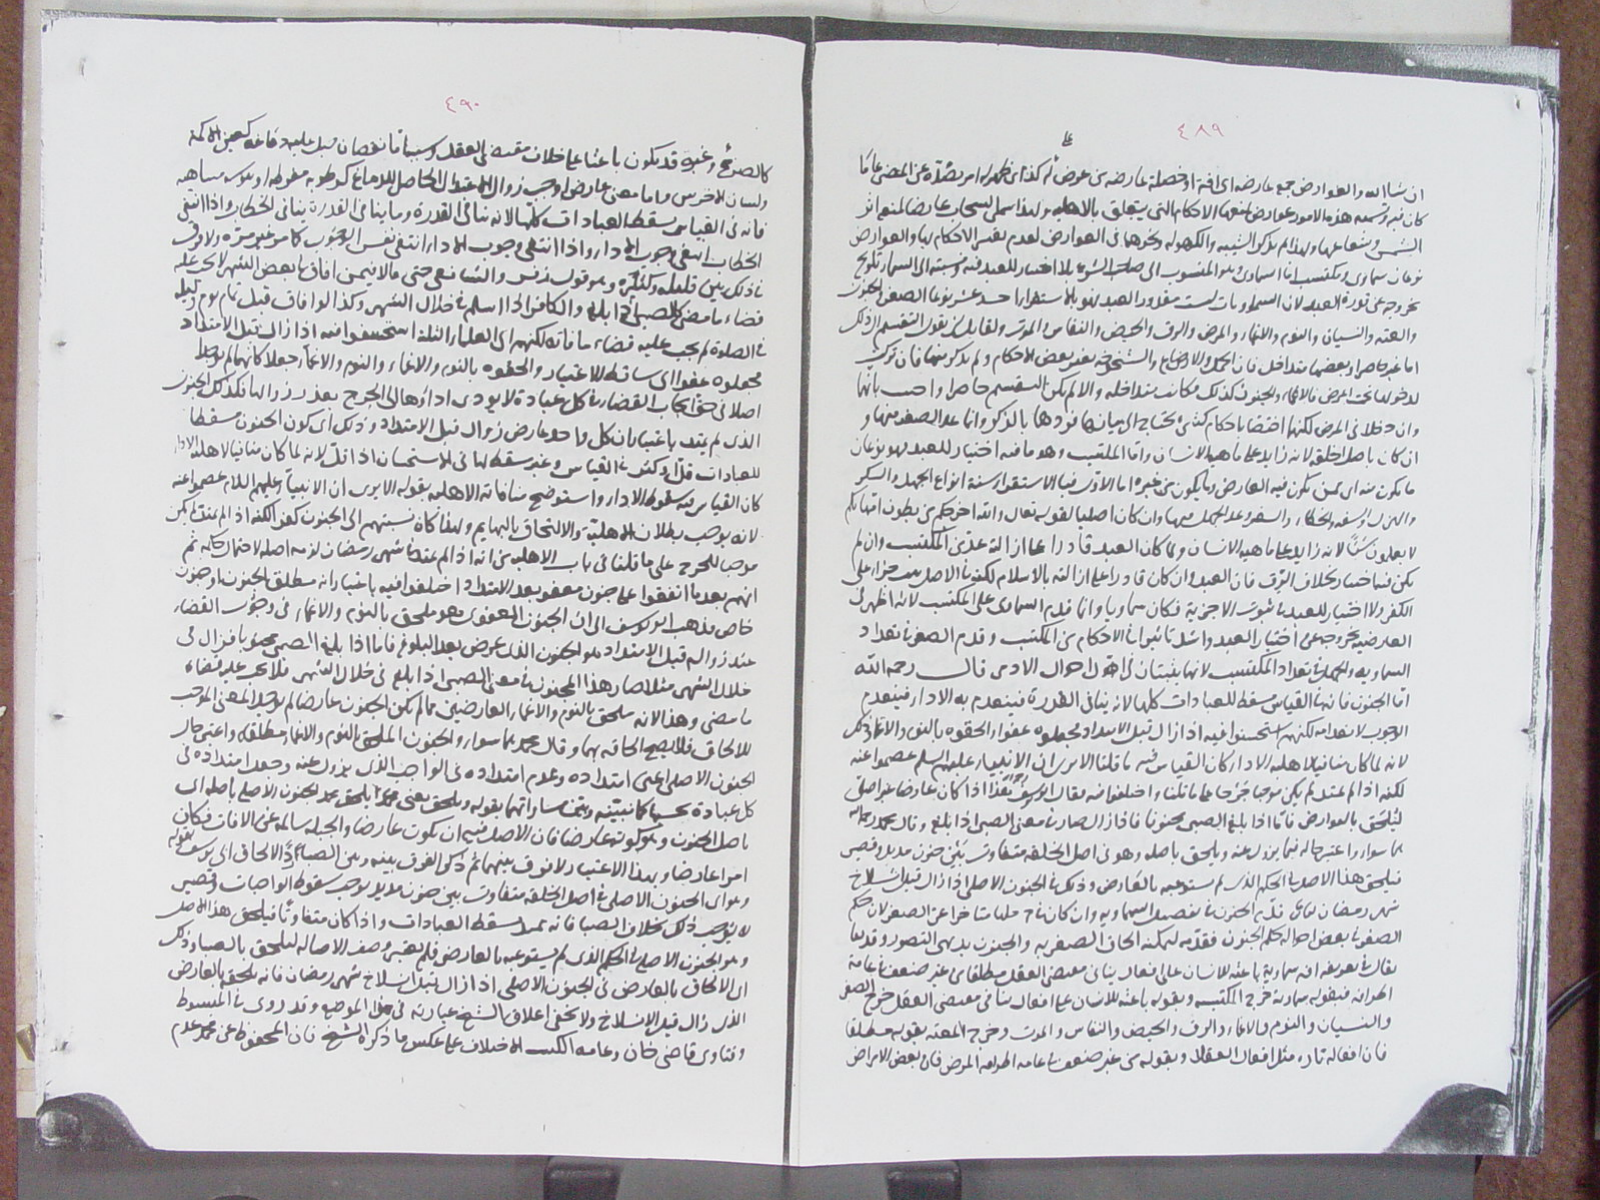 ٤٨٩
ان شاء الله والعوارض جمع عارضة اي آفة او خصلة عارضة من عرض له كذا اي ظهر له امر يصده عن المضي على ما
كان فيه وتسمية هذه الامور عوارض لمنعها الاحكام التي يتعلق بالاهلية ولهذا سمي السحاب عارضا لمنع اثر
الشمس وشعاعها ولهذا لم يذكر الشيبة والكهولة ونحوها في العوارض لعدم تغير الاحكام بها والعوارض
نوعان سماوي ومكتسب اما السماوي وهو المنسوب الى صاحب الشرع بلا اختيار للعبد فيه ونسبته الى السماء
خروجه عن قدرة العبد لان السماويات ليست مقدور العبد فهو بالاستقراء احد عشر نوعا الصغر والجنون
والعته والنسيان والنوم والاغماء والمرض والرق والحيض والنفاس والموت ولقائل ان يقول التقسيم
اما غير حاصر او بعضها متداخل فان الحمل والارضاع والشيخوخة يغير بعض الاحكام ولم يذكر منها فان
لدخولها تحت المرض فالاغماء والجنون كذلك فكانت متداخلة والا لم يكن التقسيم حاصرا واجيب بانها
وان دخلا في المرض لكنهما اختصا باحكام كثيرة يحتاج الى بيانها فافردهما بالذكر وانما عد الصغر منها و
ان كان باصل الخلقة لانه زايد على ماهية الانسان واما المكتسب وهو ما فيه اختيار للعبد فهو نوعان
ما يكون منه اي ممن يكون فيه العارض وما يكون من غيره اما الاول فبالاستقراء ستة انواع الجهل والسكر
والهزل والسفه والخطاء والسفر وعد الجهل منها وان كان اصليا لقوله تعالى والله اخرجكم من بطون امهاتكم
لا يعلمون شيئا لانه زايد على ماهية الانسان ولما كان العبد قادرا على ازالته عد من المكتسب وان لم
يكن فيه اختيار بخلاف الرق فان العبد وان كان قادرا على ازالته بالاسلام لكنه في الاصل يثبت جزاء على
الكفر ولا اختيار للعبد في ثبوت الاجزية فكان سماويا وانما قدم السماوي على المكتسب لانه اظهر في
العارضية لخروجه عن اختيار العبد واشد تاثيرا في الاحكام من المكتسب وقدم الصغر في تعداد
السماوية والجهل في تعداد المكتسب لانهما يثبتان في اول احوال الادمي قال رحمه الله
اما الجنون فانه في القياس مسقط للعبادات كلها لانه ينافي القدرة فينعدم به الاداء فينعدم
الوجوب لانعدامه لكنهم استحسنوا فيه اذا زال قبل الامتداد فجعلوه عفوا والحقوه بالنوم والاغماء وذلك
لانه لما كان منافيا لاهلية الاداء كان القياس فيه ما قلنا الا يرى ان الانبياء عليهم السلم عصموا عنه
لكنه اذا لم يمتد لم يكن موجبا حرجا على ما قلنا واختلفوا فيه فقال ابو يوسف هذا اذا كان عارضا غير اصلي
ليلحق بالعوارض فاما اذا بلغ الصبي مجنونا فاذا زال صار في معنى الصبي اذا بلغ وقال محمد رحمه الله
هما سواء واعتبر حاله فيما يزول عنه ويلحق باصله وهو في اصل الخلقة متفاوت بين جنون مديد وقصير
فيلحق هذا الاصل في الحكم الذي لم يستوعبه بالعارض وذلك في الجنون الاصلي اذا زال قبل انسلاخ
شهر رمضان لما في قدم الجنون في تفصيل السماوية وان كان في جملها متاخرا عن الصغر لان حكم
الصغر في بعض احواله حكم الجنون فقدمه ليمكنه الحاق الصغر به والجنون بديهي التصور وقد
يقال في تعريفه انه سماوية باعثة للانسان على افعال ينافي مقتضى العقل مطلقا من غير ضعف في عامة
اطرافه فبقوله سماوية خرج المكتسبة وبقوله باعثة للانسان على افعال ينافي مقتضى العقل خرج الصغر
والنسيان والنوم والاغماء والرق والحيض والنفاس والموت وخرج العته بقوله مطلقا
فان افعاله تارة مثل افعال العقلاء وبقوله من غير ضعف في عامة اطرافه المرض فان بعض الامراض
٤٩٠
كالصرع وغيره قد يكون باعثا على خلاف مقتضى العقل وسببه اما نقصان جبل عليه دماغه كعين الاكمه
ولسان الاخرس واما معنى عارض اوجب زوال الاعتدال الحاصل للدماغ كرطوبة مفرطة او يبوسة متناهية
فانه في القياس مسقط العبادات كلها لانه ينافي القدرة وما ينافي القدرة ينافي الخطاب واذا انتفى
الخطاب انتفى وجوب الاداء واذا انتفى وجوب الاداء انتفى نفس الوجوب كما مر غير مرة ولا فرق
في ذلك بين قليله وكثيره وهو قول زفر والشافعي حتى قالا فيمن افاق في بعض الشهر لا يجب عليه
قضاء ما مضى كالصبي اذا بلغ والكافر اذا اسلم في خلال الشهر وكذا لو افاق قبل تمام يوم وليلة
في الصلوة لم يجب عليه قضاء ما فاته لكنهم اي العلماء الثلثة استحسنوا فيه اذا زال قبل الامتداد
فجعلوه عفوا اي ساقط الاعتبار والحقوه بالنوم والاغماء والنوم والاغماء جعلا كانهما لم يوجدا
اصلا في حق ايجاب القضاء في كل عبادة لا يودي اداؤها الى الحرج بعد زوالهما فكذلك الجنون
الذي لم يمتد باعتبار ان كل واحد عارض زوال قبل الامتداد وذلك اي كون الجنون مسقطا
للعبادات قل او كثر في القياس وغير مسقط لها في الاستحسان اذا قل لانه لما كان منافيا لاهلية الاداء
كان القياس فيه سقوط الاداء واستوضح منافاته الاهلية بقوله الا يرى ان الانبياء عليهم السلام عصموا عنه
لانه يوجب بطلان الاهلية والالتحاق بالبهايم ولهذا كان نسبتهم الى الجنون كفرا لكنه اذا لم يمتد لم يكن
موجبا للحرج على ما قلنا في باب الاهلية من انه اذا لم يمتد في شهر رمضان لزمه اصله لاحتمال خلفه ثم
انهم بعد ما اتفقوا على جنون معفو بعد الامتداد اختلفوا فيه باعتبار انه مطلق الجنون او جنون
خاص فذهب ابو يوسف الى ان الجنون المعفو وهو ملحق بالنوم والاغماء في وجوب القضاء
عند زواله قبل الامتداد هو الجنون الذي عرض بعد البلوغ فاما اذا بلغ الصبي مجنونا فزال في
خلال الشهر مثلا صار هذا المجنون في معنى الصبي اذا بلغ في خلال الشهر فلا يجب عليه قضاء
ما مضى وهذا لانه ملحق بالنوم والاغماء العارضين فما لم يكن الجنون عارضا لم يوجد المعنى الموجب
للالحاق فلا يصح الحاقه بهما وقال محمد هما سواء والجنون الملحق بالنوم والاغماء مطلقه واعتبر حال
الجنون الاصلي اعني امتداده وعدم امتداده في الواجب الذي يزول عنه وحد امتداده في
كل عبادة بحسبها كما نبينه وبين مساواتهما بقوله ويلحق يعني محمد يلحق الجنون الاصلي باصله اي
باصل الجنون وهو كونه عارضا فان الاصل فيه ان يكون عارضا والجبلة سالمة عن الافات فكان
امرا عارضا وبهذا الاعتبار لا فرق بينهما ثم ذكر الفرق بينه وبين الصبا ردا لالحاق ابي يوسف بقوله
وهو اي الجنون الاصلي في اصل الخلقة متفاوت بين جنون مديد يوجب سقوط الواجبات وقصير
لا يوجب ذلك بخلاف الصبا فانه ممتد مسقط العبادات واذا كان متفاوتا فيلحق هذا الاصل
وهو الجنون الاصلي في الحكم الذي لم يستوعبه بالعارض فلم يعتبر وصف الاصالة ليلحق بالصبا وذلك
اي الالحاق بالعارض في الجنون الاصلي اذا زال قبل انسلاخ شهر رمضان فانه يلحق بالعارض
الذي زال قبل الانسلاخ ولا يخفى اغلاق الشيخ عبارته في هذا الموضع وقد روي في المبسوط
وفتاوى قاضي خان وعامة الكتب الاختلاف على عكس ما ذكره الشيخ فان المحفوظ عن محمد عدم